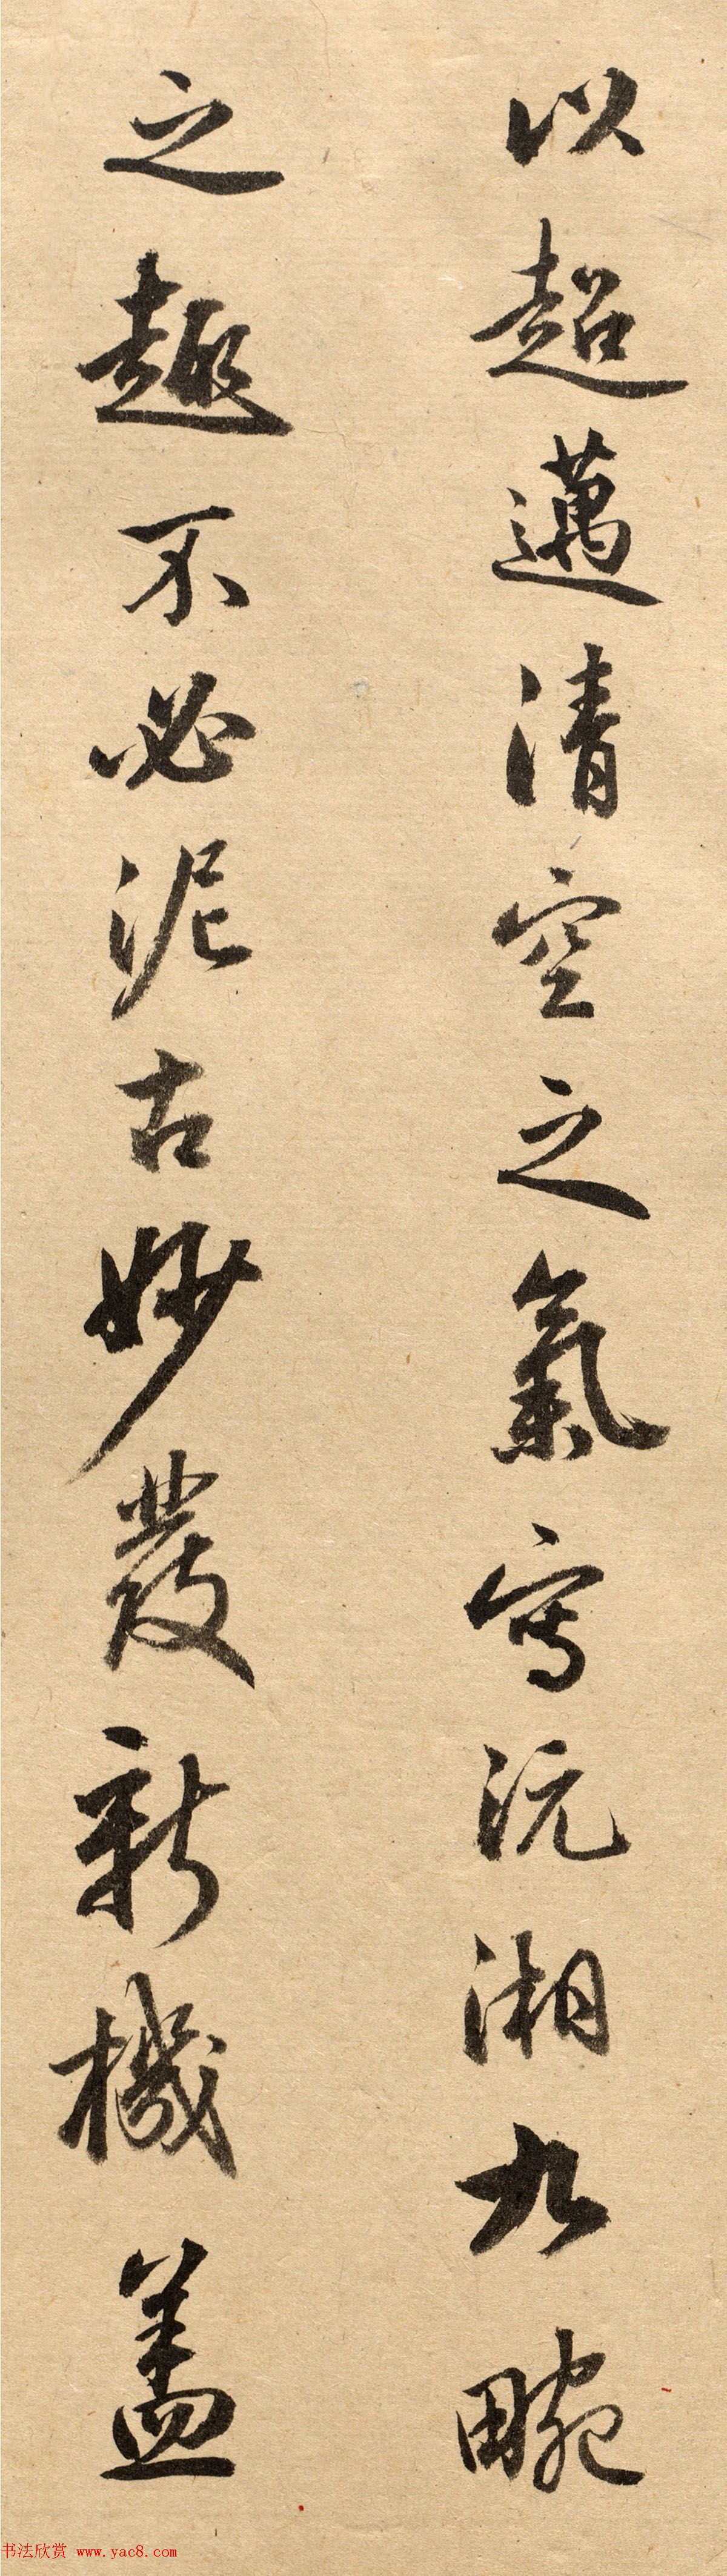 以超邁清空之氣寫沅湘九畹
之趣不必泥古妙發新機蓋
书法欣赏 www.yac8.com